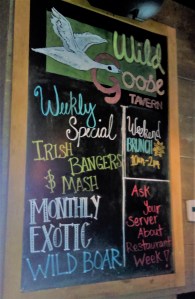 Wild
Goose
TAVERN
Weekly
Special
IRISH
BANGERS
& MASH
MONTHLY
EXOTIC
WILD BOAR!
Weekend
BRUNCH
10am-2pm
Ask
Your
Server
About
Restaurant
Week!!